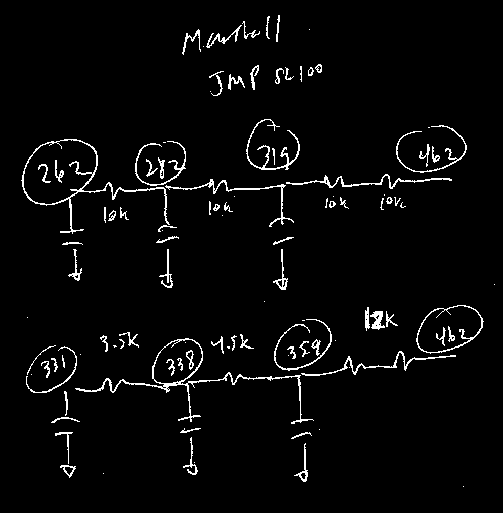 Marshall
JMP SL100
262 282 319 462
10k 10k 10k 10k
3.5k 4.5k 12K
331 338 359 462